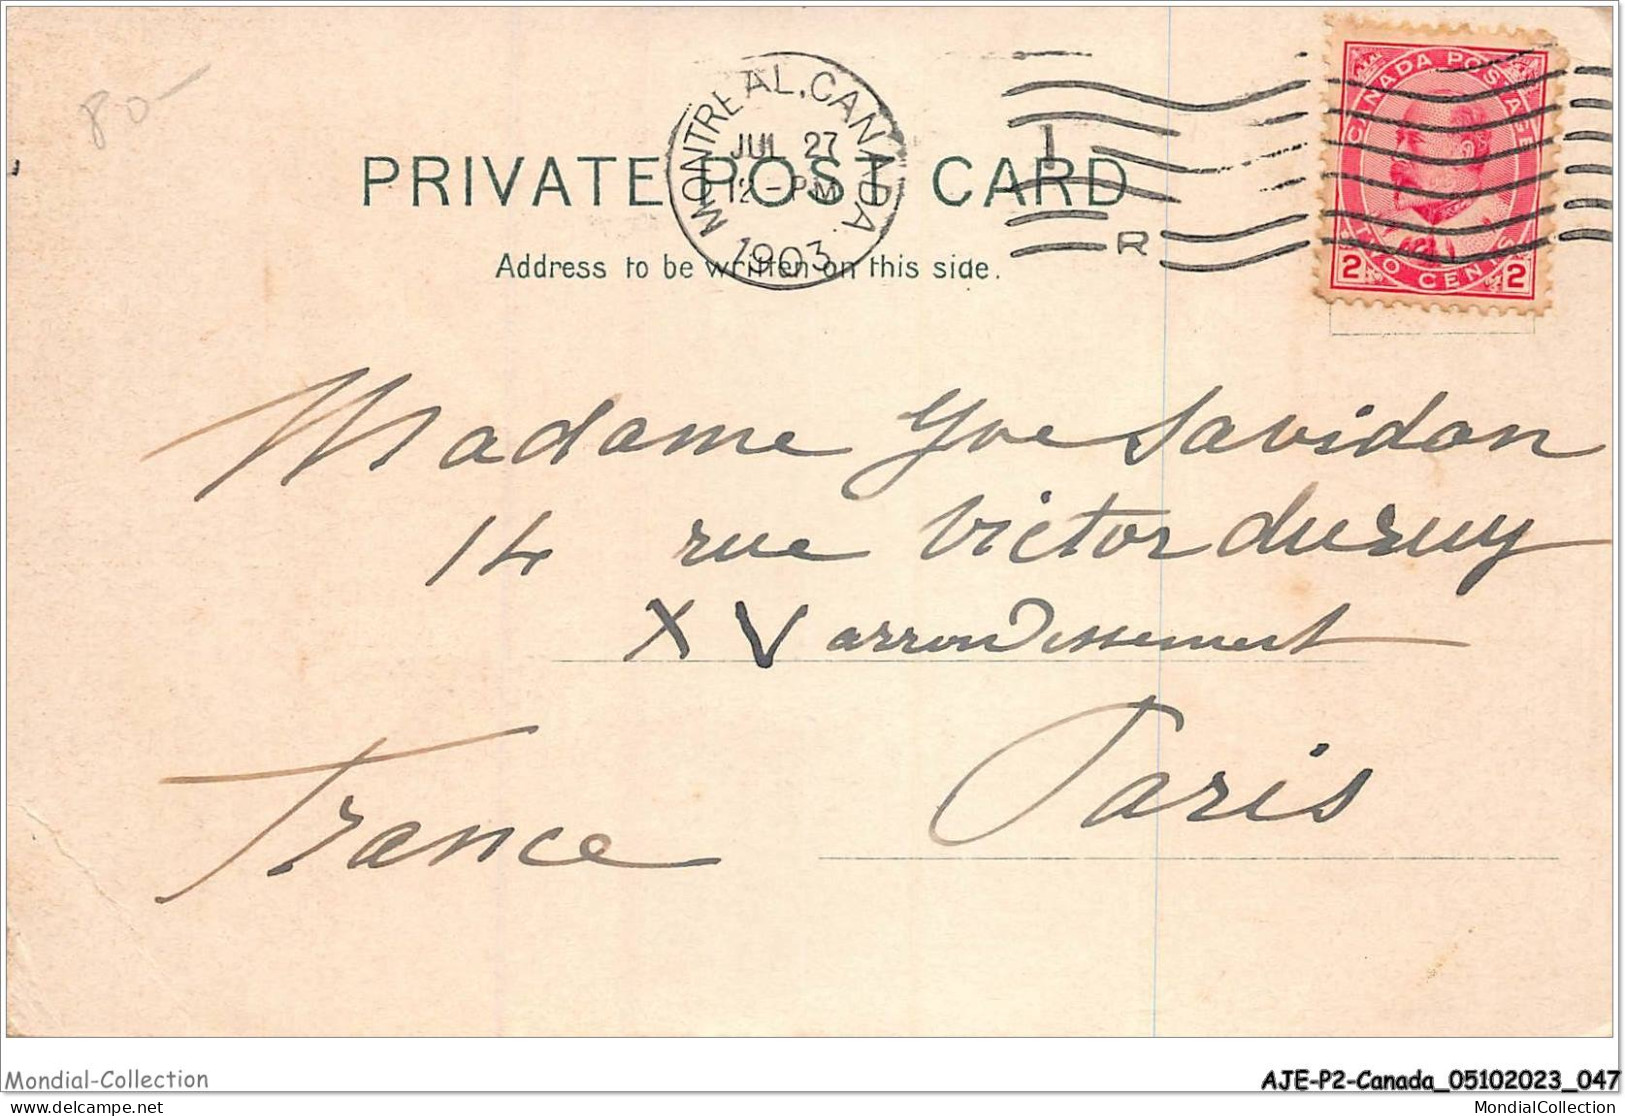 80-
MONTREAL, CANADA.
JUL 27
12-PM
1903
1
R
CANADA POSTAGE
TWO CENTS
2 2
PRIVATE POST CARD
Address to be written on this side.
Madame Yve Savidan
14 rue Victor duruy
XV arrondissement
Paris
France
Mondial-Collection
AJE-P2-Canada_05102023_047
delcampe.net
MondialCollection